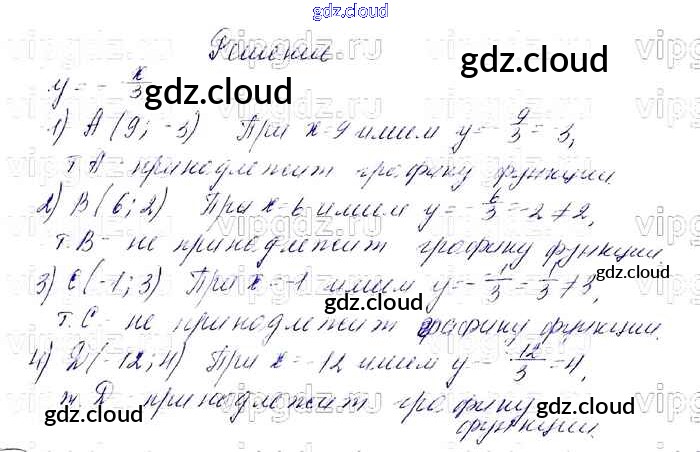 gdz.cloud
Решение
y = - x/3
1) А (9; -3) При x=9 имеем y=-9/3=-3,
т. А - принодлежит графику функции.
2) В (6; 2) При x=6 имеем y=-6/3=-2≠2,
т. В - не принодлежит графику функции
3) С (-1; 3) При x=-1 имеем y=- -1/3=1/3≠3,
т. С - не принодлежит графику функции.
4) D (-12; 4) При x=-12 имеем y=- -12/3=4,
т. D - принодлежит графику
функции.
gdz.cloud
gdz.cloud
gdz.cloud
gdz.cloud
gdz.cloud
gdz.cloud
gdz.cloud
gdz.cloud